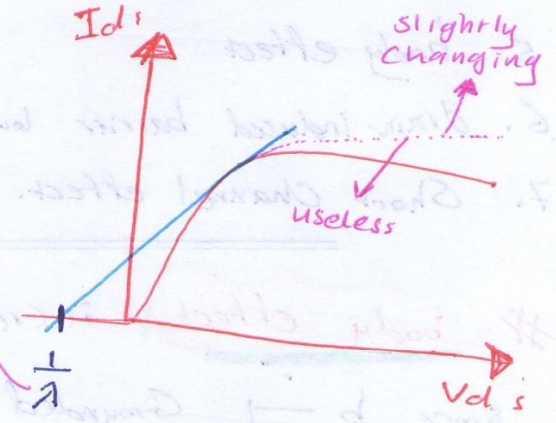 Ids
slightly
changing
useless
1
λ
Vds